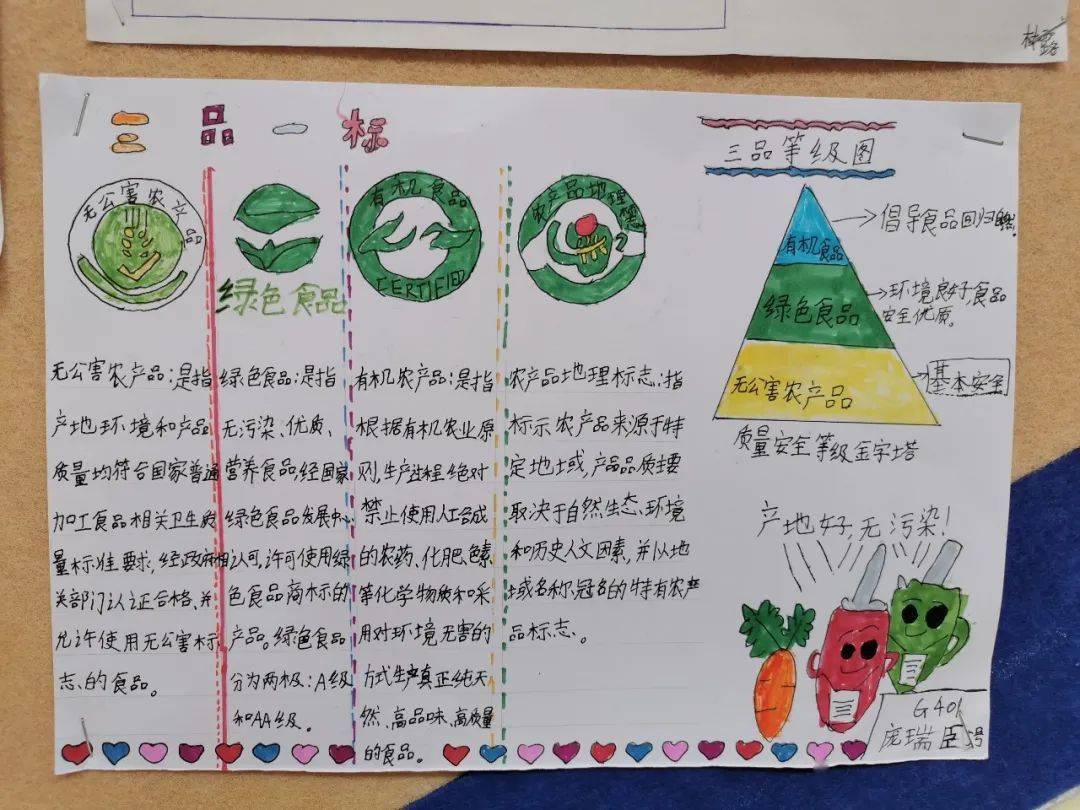 三品一标
无公害农产品
绿色食品
有机食品
CERTIFIED
农产品地理标志
无公害农产品:是指
产地环境和产品
质量均符合国家普通
加工食品相关卫生质
量标准要求,经政府相
关部门认证合格、并
允许使用无公害标
志的食品。
绿色食品:是指
无污染、优质、
营养食品,经国家
绿色食品发展中
认可,许可使用绿
色食品商标的
产品。绿色食品
分为两极:A级
和AA级.
有机农产品:是指
根据有机农业原
则,生产过程绝对
禁止使用人工合成
的农药、化肥、色素
等化学物质和采
用对环境无害的
方式生产真正纯天
然、高品味、高质量
的食品。
农产品地理标志:指
标示农产品来源于特
定地域,产品品质主要
取决于自然生态环境
和历史人文因素,并以地
域名称冠名的特有农产
品标志。
三品等级图
有机食品
倡导食品回归自然.
绿色食品
环境良好,食品
安全优质。
无公害农产品
基本安全
质量安全等级金字塔
产地好,无污染!
G401
庞瑞臣
号